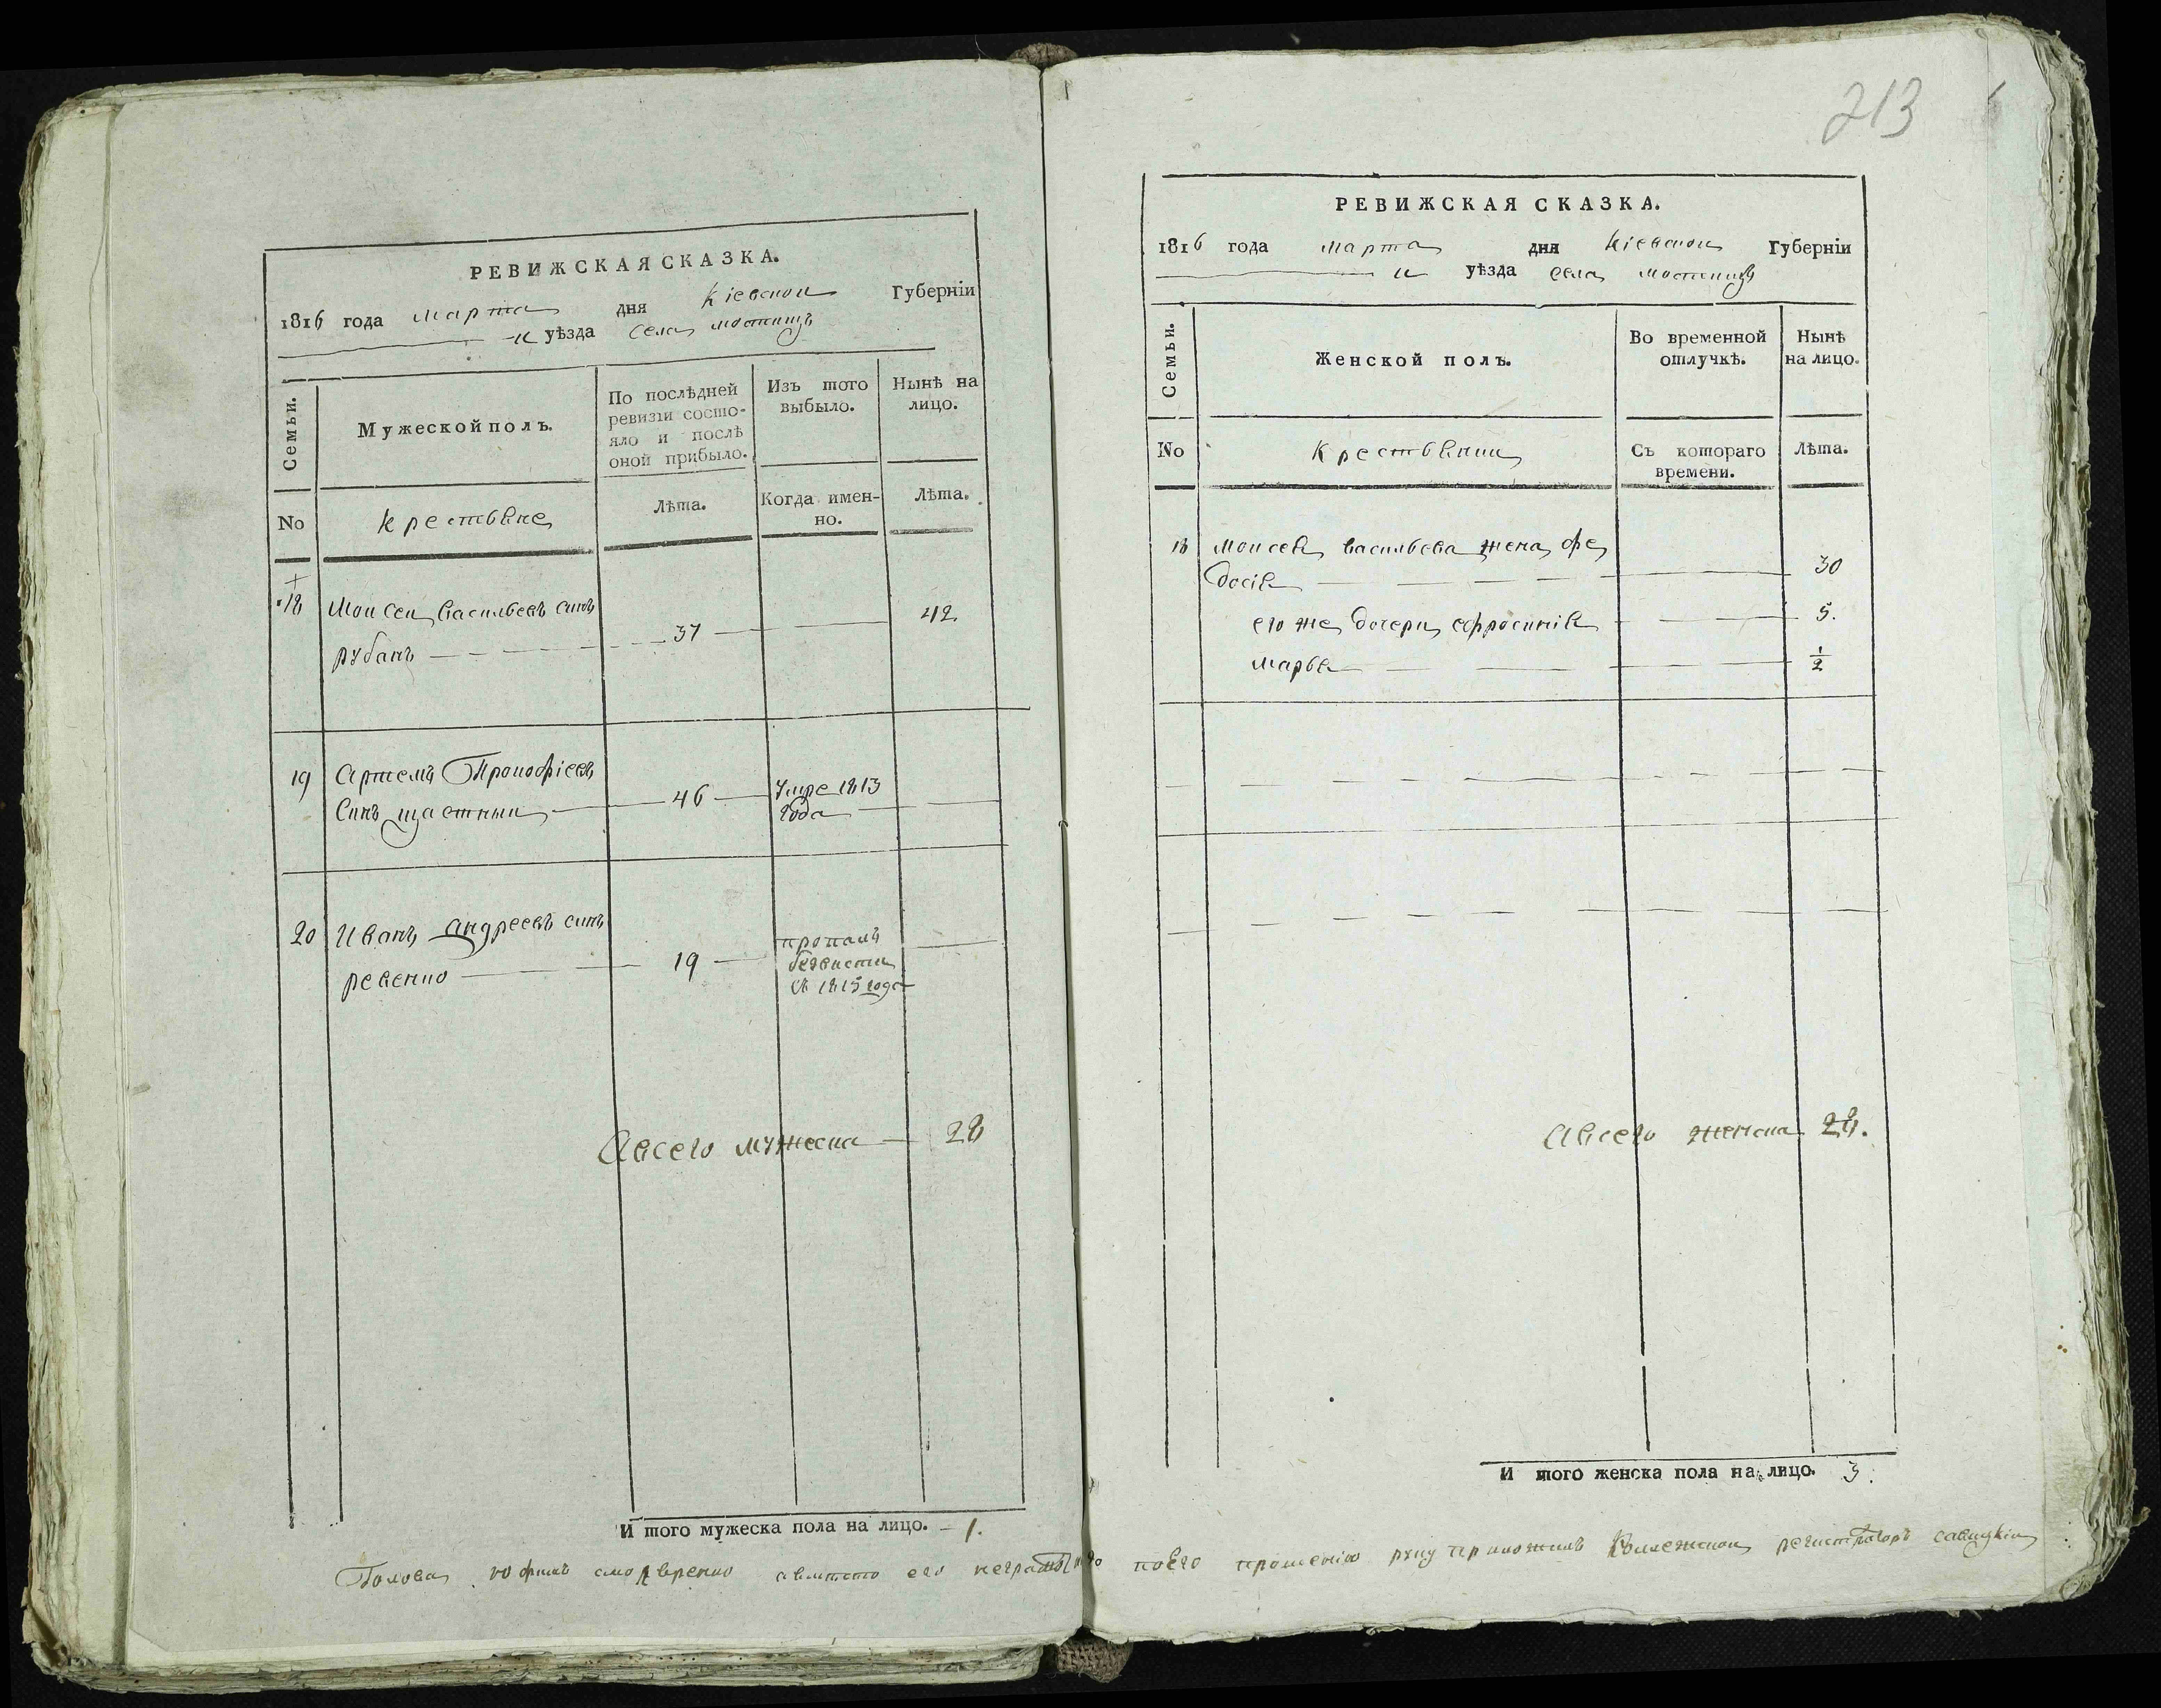 РЕВИЖСКАЯ СКАЗКА.
1816 года марта дня Кіевской Губерніи
й уѣзда села мостищъ
Семьи.
Мужеской полъ.
По послѣдней
ревизіи состо-
яло и послѣ
оной прибыло.
Изъ того
выбыло.
Нынѣ на
лицо.
No
крестьяне
Лѣта.
Когда имен-
но.
Лѣта.
18 Моисей васильевъ синъ
рубанъ 37 42.
19 Артемъ Прокофіевъ
Синъ щастный 46 Умре 1813
года
20 Иванъ андреевъ синъ
ревенко 19 пропалъ
безвисти
съ 1815 года
Авсего мужеска 28
И того мужеска пола на лицо. 1.
213
РЕВИЖСКАЯ СКАЗКА.
1816 года марта дня Кіевской Губерніи
й уѣзда села мостищъ
Семьи.
Женской полъ.
Во временной
отлучкѣ.
Нынѣ
на лицо.
No
Крестьянки
Съ котораго
времени.
Лѣта.
18 Моисея васильева жена фе
досія 30
его же дочери ефросинія 5.
марья ½
Авсего женска
И того женска пола на лицо. 3.
Голова юфимъ его по его прошенію руку приложилъ Колежской регистраторъ савицкій